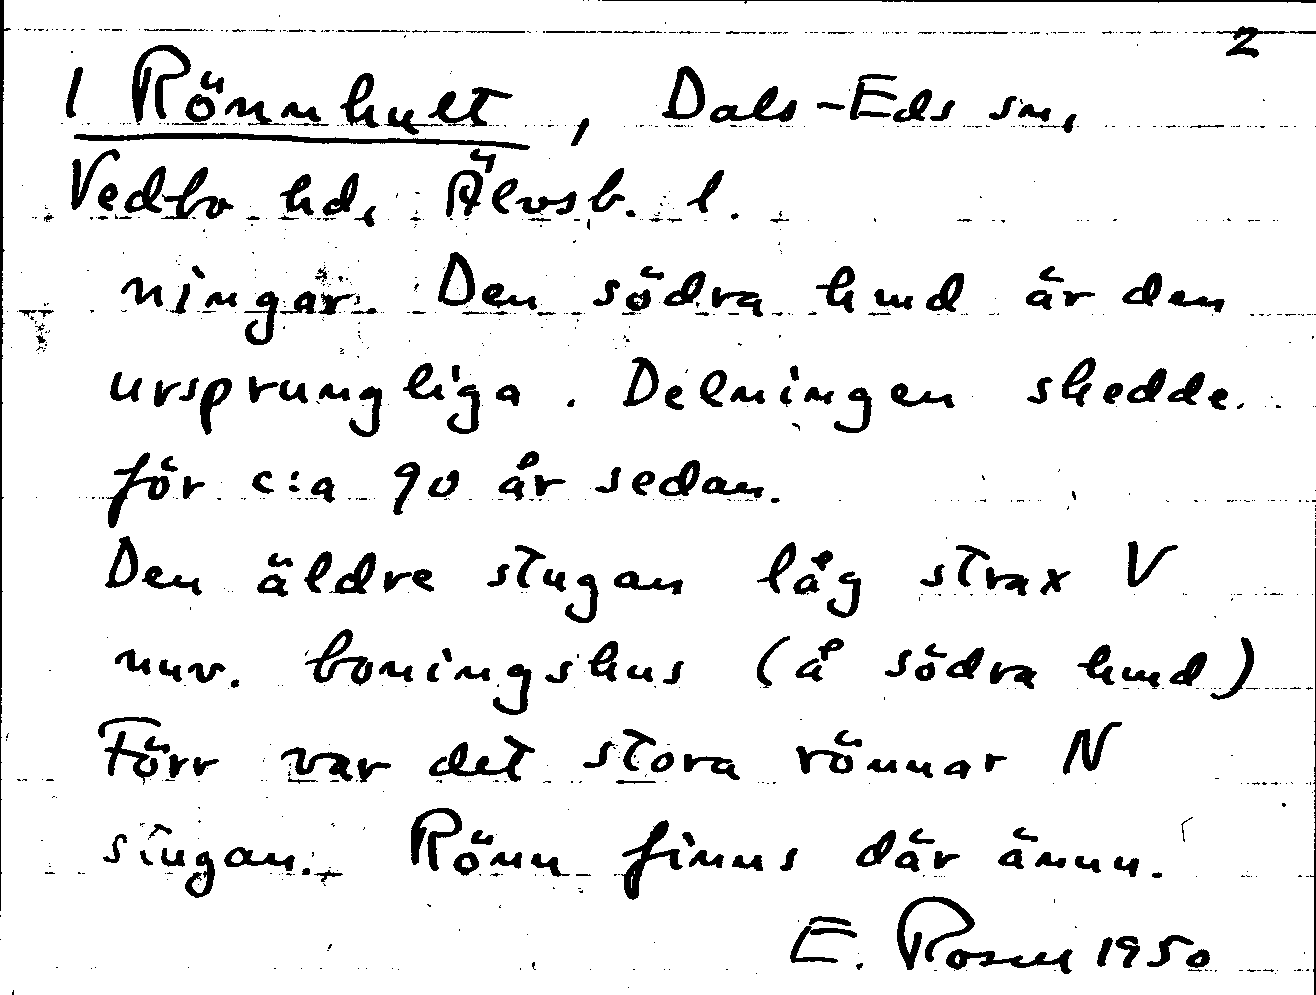 2
1 Rönnhult, Dals-Eds sn,
Vedbo hd, Älvsb. l.
ningar. Den södra hmd är den
ursprungliga. Delningen skedde
för c:a 90 år sedan.
Den äldre stugan låg strax V
nuv. boningshus (å södra hmd)
Förr var det stora rönnar N
stugan. Rönn finns där ännu.
E. Rosen 1950